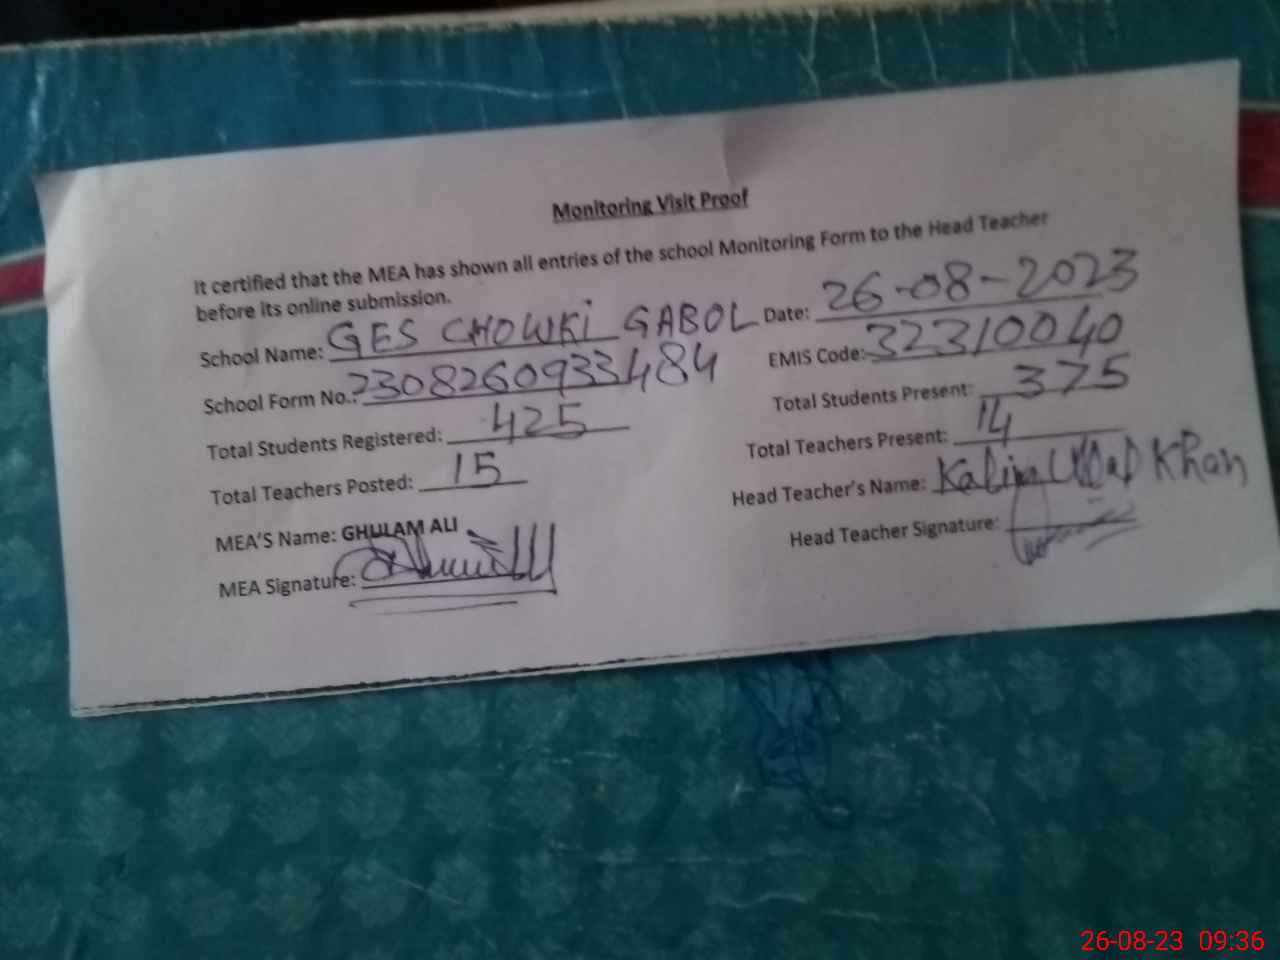 Monitoring Visit Proof
It certified that the MEA has shown all entries of the school Monitoring Form to the Head Teacher
before its online submission.
School Name: GES CHOWKI GABOL Date: 26-08-2023
School Form No.: 2308260933484 EMIS Code: 32310040
Total Students Registered: 425 Total Students Present: 375
Total Teachers Posted: 15 Total Teachers Present: 14
MEA'S Name: GHULAM ALI Head Teacher's Name: Kalim Ullah Khan
MEA Signature: Head Teacher Signature:
26-08-23 09:36